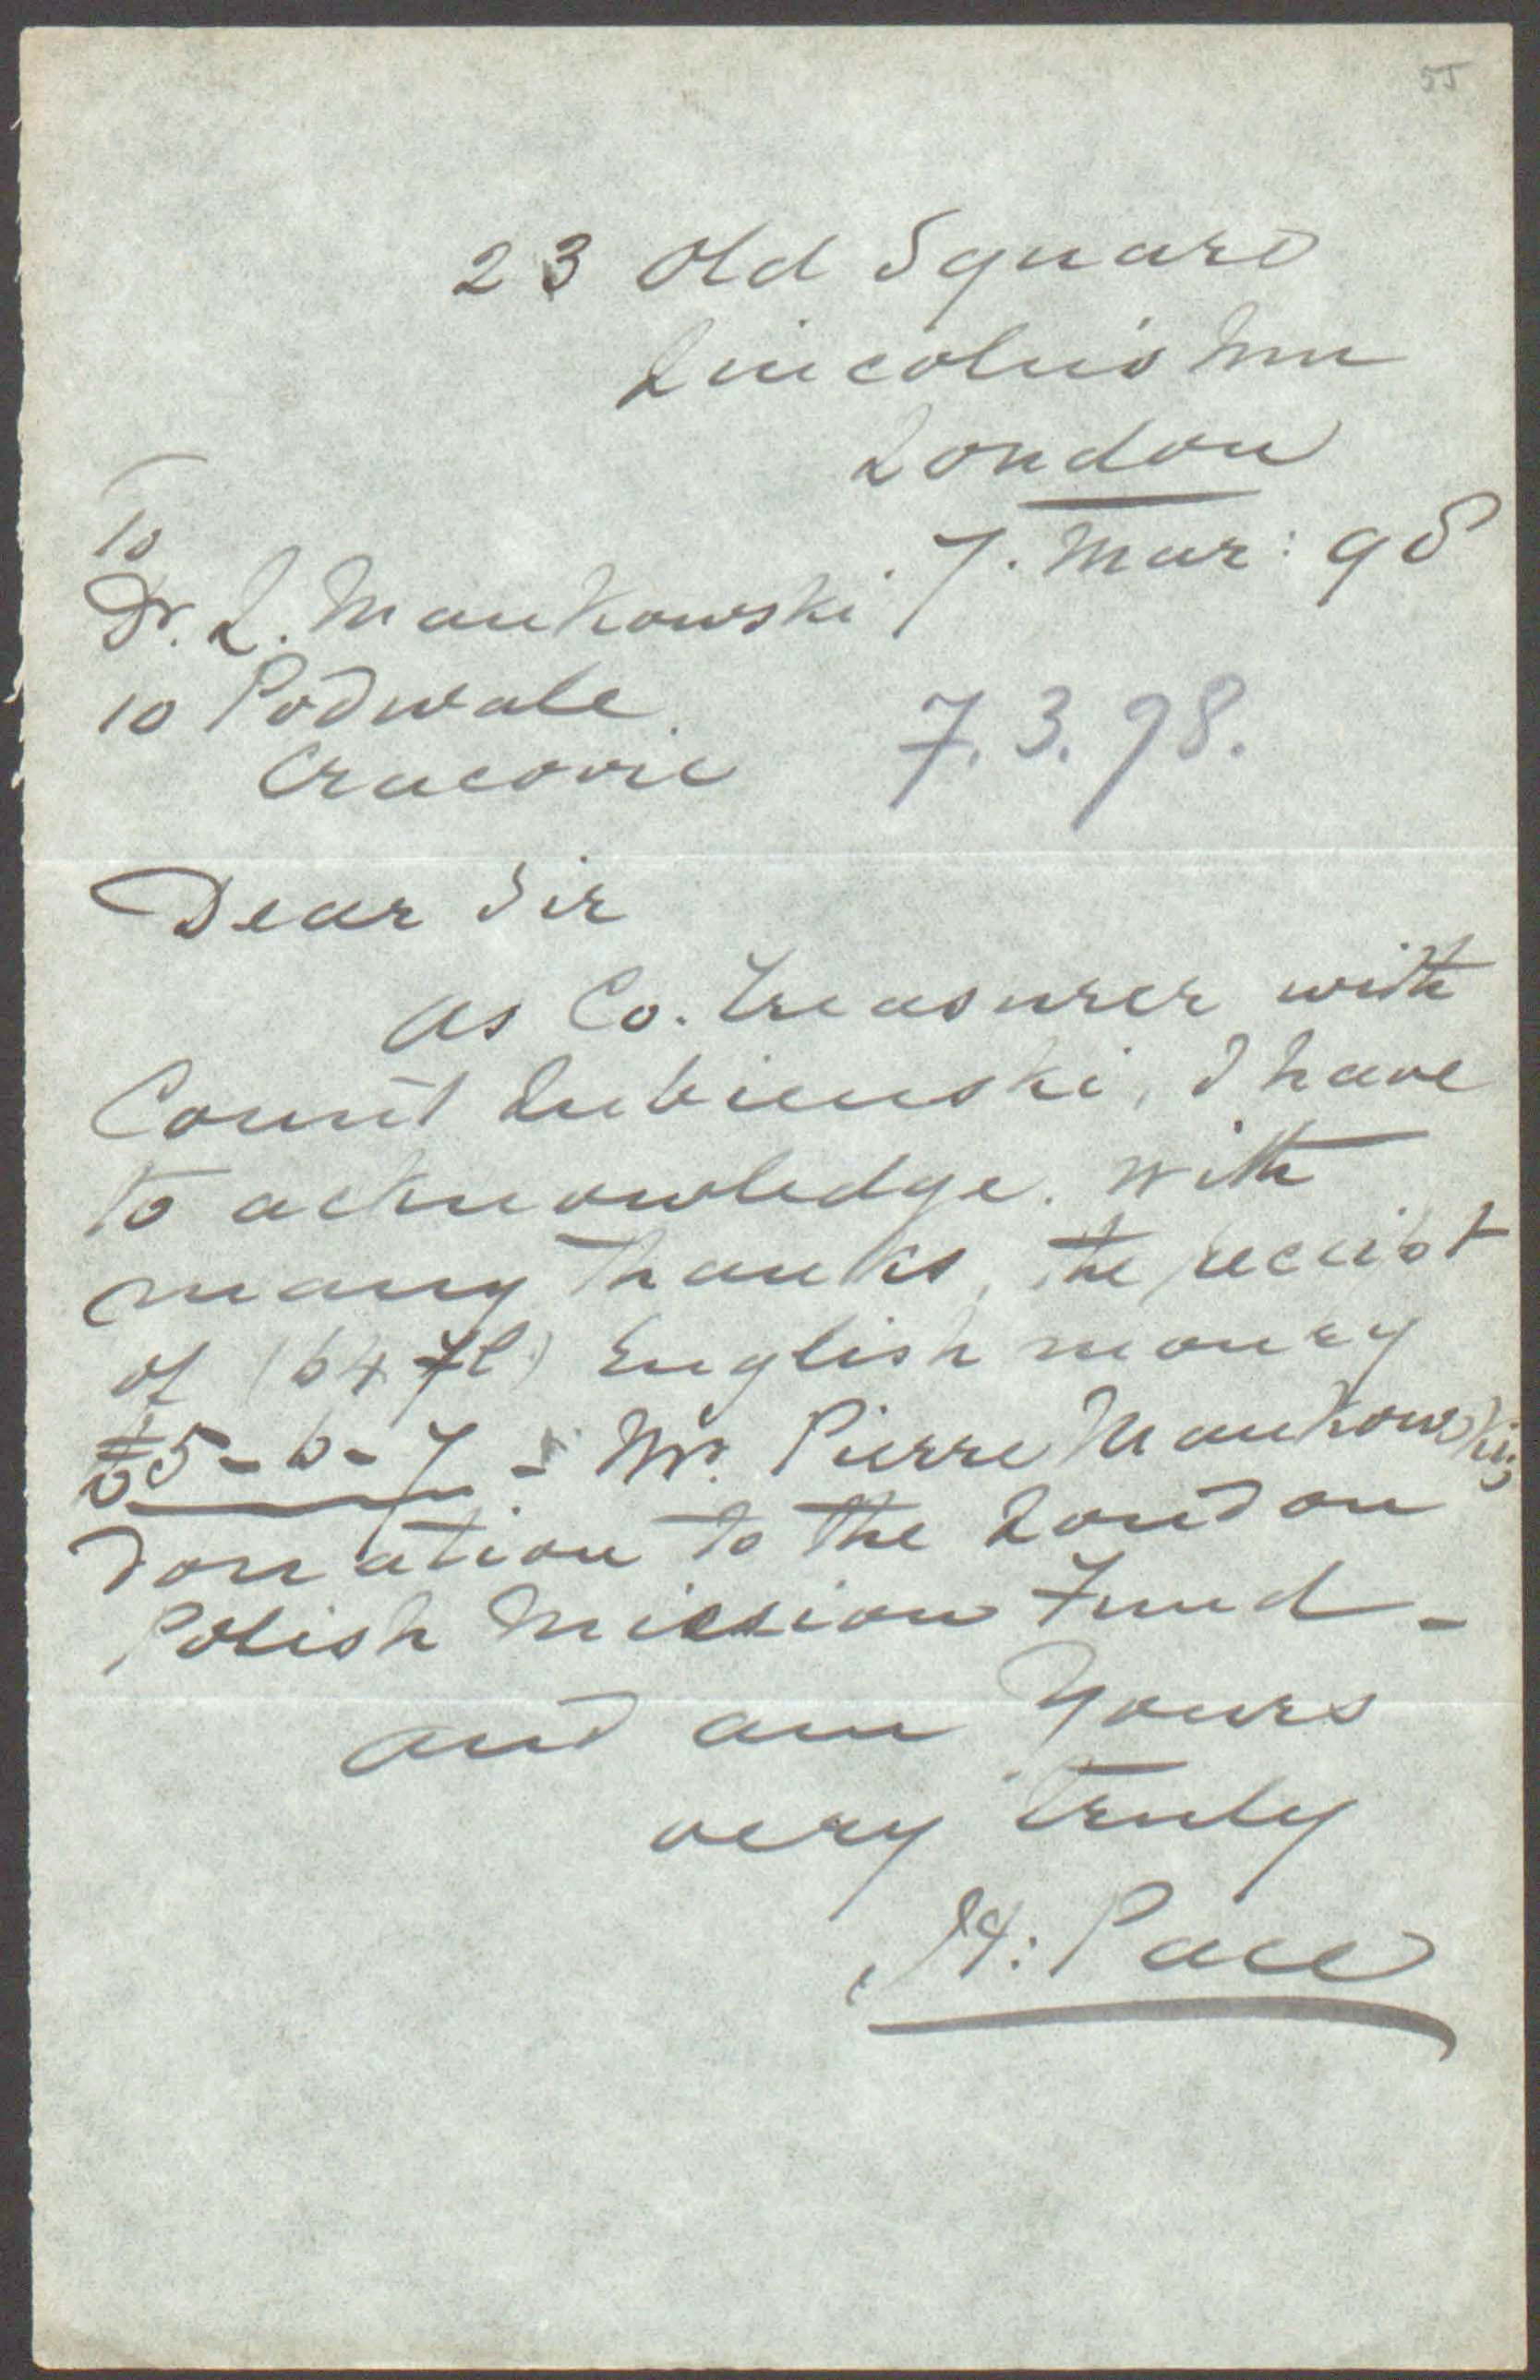 55
23 Old Square
Lincoln's Inn
London
7. Mar: 98
To
Dr. L. Mankowski
10 Podwale
Cracovie
7.3.98.
Dear Sir
As Co. Treasurer with
Count Lubienski, I have
to acknowledge. with
many thanks, the receipt
of (64 fl) English money
£5-6-7 - Mr. Pierre Mankowski's
donation to the London
Polish Mission Fund -
and am Yours
very truly
H: Pace